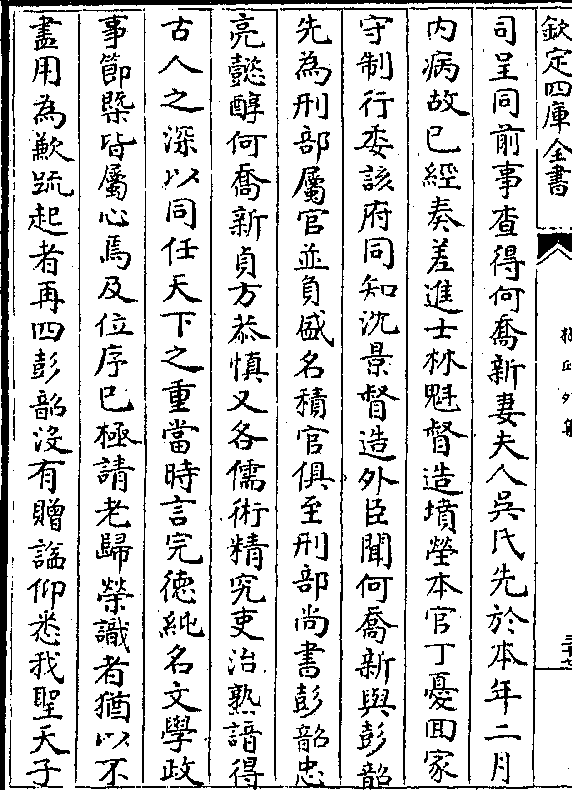 欽定四庫全書
司呈同前事查得何喬新妻夫人吳氏先於本年二月
内病故已經奏差進士林魁督造墳塋本官丁憂回家
守制行委該府同知沈景督造外臣聞何喬新與彭韶
先為刑部屬官並負盛名積官俱至刑部尚書彭韶忠
亮懿醇何喬新貞方恭慎又各儒術精究吏治熟諳得
古人之深以同任天下之重當時言完德純名文學政
事節槩皆屬心焉及位序已極請老歸榮識者猶以不
盡用為歉疏起者再四彭韶沒有贈諡仰悉我聖天子